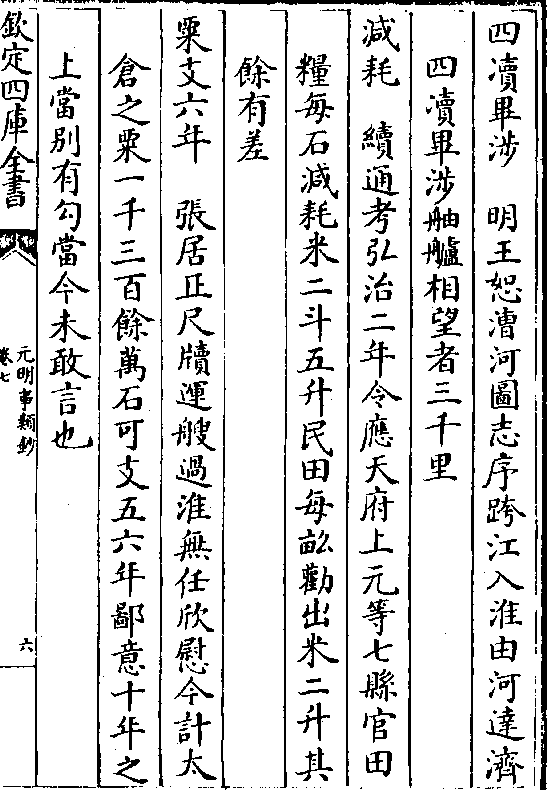 四瀆畢涉　明王恕漕河圖志序跨江入淮由河達濟
四瀆畢涉舳艫相望者三千里
減耗　續通考弘治二年令應天府上元等七縣官田
糧每石減耗米二斗五升民田每畝勸出米二升其
餘有差
粟支六年　張居正尺牘運艘過淮無任欣慰今計太
倉之粟一千三百餘萬石可支五六年鄙意十年之
上當别有勾當今未敢言也
欽定四庫全書
元明事類鈔
卷七
六